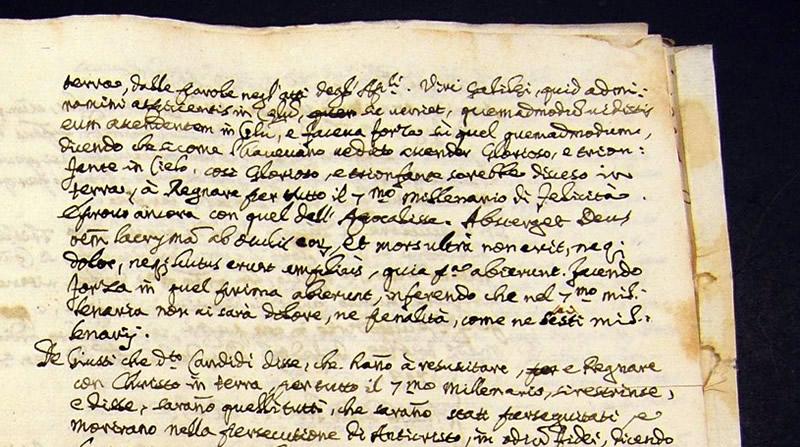 terra, dalle parole negl'atti degl'Apli. Viri Galilei, quid admi-
ramini aspicientes in Celũ, sic veniet, quemadmodũ vidistis
eum ascendentem in Celũ, e faceva forza sù quel quemadmodum,
dicendo che si come l'havevano veduto ascender Glorioso, e trion:
fante in Cielo, così Glorioso, e trionfante sarebbe disceso in
terra, à Regnare per tutto il 7mo Millenario di felicità.
E provo ancora con quel dell'Apocalisse. Absterget Deus
oẽm lacrymã ab oculis eoȝ, et mors ultrà non erit, neq.
dolor, neqȝ luctus erunt amplius, quia pa abierunt. facendo
forza in quel prima abierunt, inferendo che nel 7mo mil:
lenario non vi sarà dolore, ne penalità, come ne sesti mil:
lenarij.
De Giusti che dto Candidi disse, che hãno à resuscitare, e Regnare
con Christo in terra, per tutto il 7mo Millenario, si restrinse,
e disse, sarãno quelli tutti, che sarãno stati perseguitati, e
morirano nella persecutione di Anticristo, in odiũ fidei, dicendo